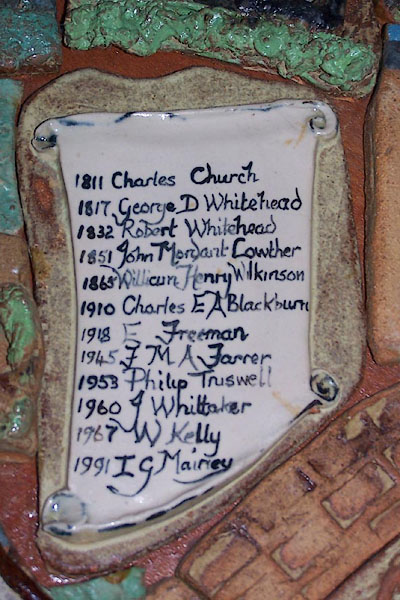 1811 Charles Church
1817 George D Whitehead
1832 Robert Whitehead
1851 John Mordant Lowther
1865 William Henry Wilkinson
1910 Charles E A Blackburn
1918 E Freeman
1945 F M A Farrer
1953 Philip Truswell
1960 J Whittaker
1967 W Kelly
1991 I G Mairiey